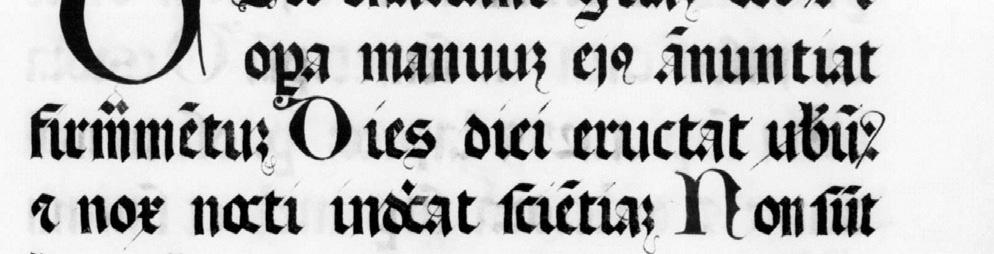 opa manuuʒ eiꝰ ānuntiat
firmmētuʒ Dies diei eructat ubū
⁊ nox nocti indicat ſciētiaʒ Non ſūt